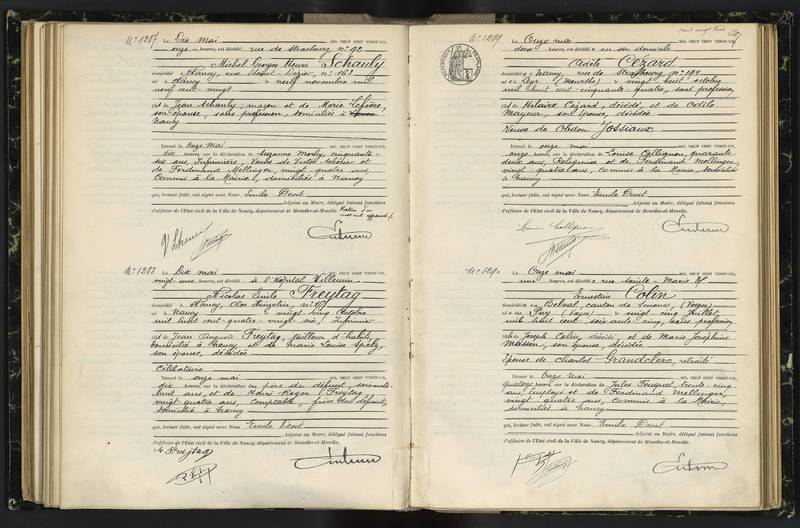 N° 1287 Le Dix mai MIL NEUF CENT VINGT-UN,
onze heures, est décédé rue de Strasbourg n° 92
Michel Georges Henri Schauly
domicilié à Nancy, rue n° 163
né à Nancy le neuf novembre mil
neuf cent vingt
fils de Jean Schauly, maçon et de Marie Lefèvre,
son épouse, sans profession, domiciliés à
Nancy
Dressé le Onze Mai MIL NEUF CENT VINGT-UN,
dix heures, sur la déclaration de Suzanne cinquante
six ans, Infirmière, Veuve de Victor et
de Ferdinand Mellinger, vingt quatre ans,
Commis à la Mairie, domiciliés à Nancy
qui, lecture faite, ont signé avec Nous Emile Devit
Adjoint au Maire, délégué faisant fonctions
d'officier de l'Etat civil de la Ville de Nancy, département de Meurthe-et-Moselle.
N° 1288 Le Dix mai MIL NEUF CENT VINGT-UN,
vingt heures, est décédé à l'Hôpital Villemin
Nicolas Emile Freytag
domicilié à Nancy
né à Nancy le vingt cinq Octobre
mil huit cent quatre-vingt six, Infirmier
fils de Jean Auguste Freytag, tailleur d'habits,
domicilié à Nancy et de Marie Louise
son épouse, décédée
Célibataire
Dressé le onze mai MIL NEUF CENT VINGT-UN,
dix heures, sur la déclaration du père du défunt, soixante
huit ans, et de Henri Roger Freytag
vingt quatre ans, Comptable, frère du défunt,
domiciliés à Nancy
qui, lecture faite, ont signé avec Nous Emile Devit
Adjoint au Maire, délégué faisant fonctions
d'officier de l'Etat civil de la Ville de Nancy, département de Meurthe-et-Moselle.
Freytag
N° 1289 Le Onze mai MIL NEUF CENT VINGT-UN,
deux heures, est décédée en son domicile
Odile Cézard
domiciliée à Nancy, rue de Strasbourg, n°
née à (Meurthe) le vingt huit octobre
mil huit cent cinquante quatre, sans profession,
fille de Hilaire Cézard, décédé, et de Odile
Mayeur, son épouse, décédée
Veuve de Jossiaux
Dressé le onze mai MIL NEUF CENT VINGT-UN,
onze heures, sur la déclaration de Louise Collignon, quarante
deux ans, Religieuse et de Ferdinand Mellinger,
vingt quatre ans, commis à la Mairie, domiciliés
à Nancy
qui, lecture faite, ont signé avec Nous Emile Devit
Adjoint au Maire, délégué faisant fonctions
d'officier de l'Etat civil de la Ville de Nancy, département de Meurthe-et-Moselle.
Louise Collignon
N° 1290 Le Onze mai MIL NEUF CENT VINGT-UN,
une heures, est décédée rue Sainte-Marie
Ernestine Colin
domiciliée à Belval, canton de Senones (Vosges)
née au Puy (Vosges) le vingt cinq Juillet
mil huit cent soixante cinq, sans profession
fille de Joseph Colin, décédé, et de Marie Joséphine
Masson, son épouse, décédée
Epouse de Charlot Grandclerc, retraité
Dressé le Onze mai MIL NEUF CENT VINGT-UN,
quatorze heures, sur la déclaration de Jules trente cinq
ans, employé et de Ferdinand Mellinger,
vingt quatre ans, Commis à la Mairie,
domiciliés à Nancy
qui, lecture faite, ont signé avec Nous Emile Devit
Adjoint au Maire, délégué faisant fonctions
d'officier de l'Etat civil de la Ville de Nancy, département de Meurthe-et-Moselle.